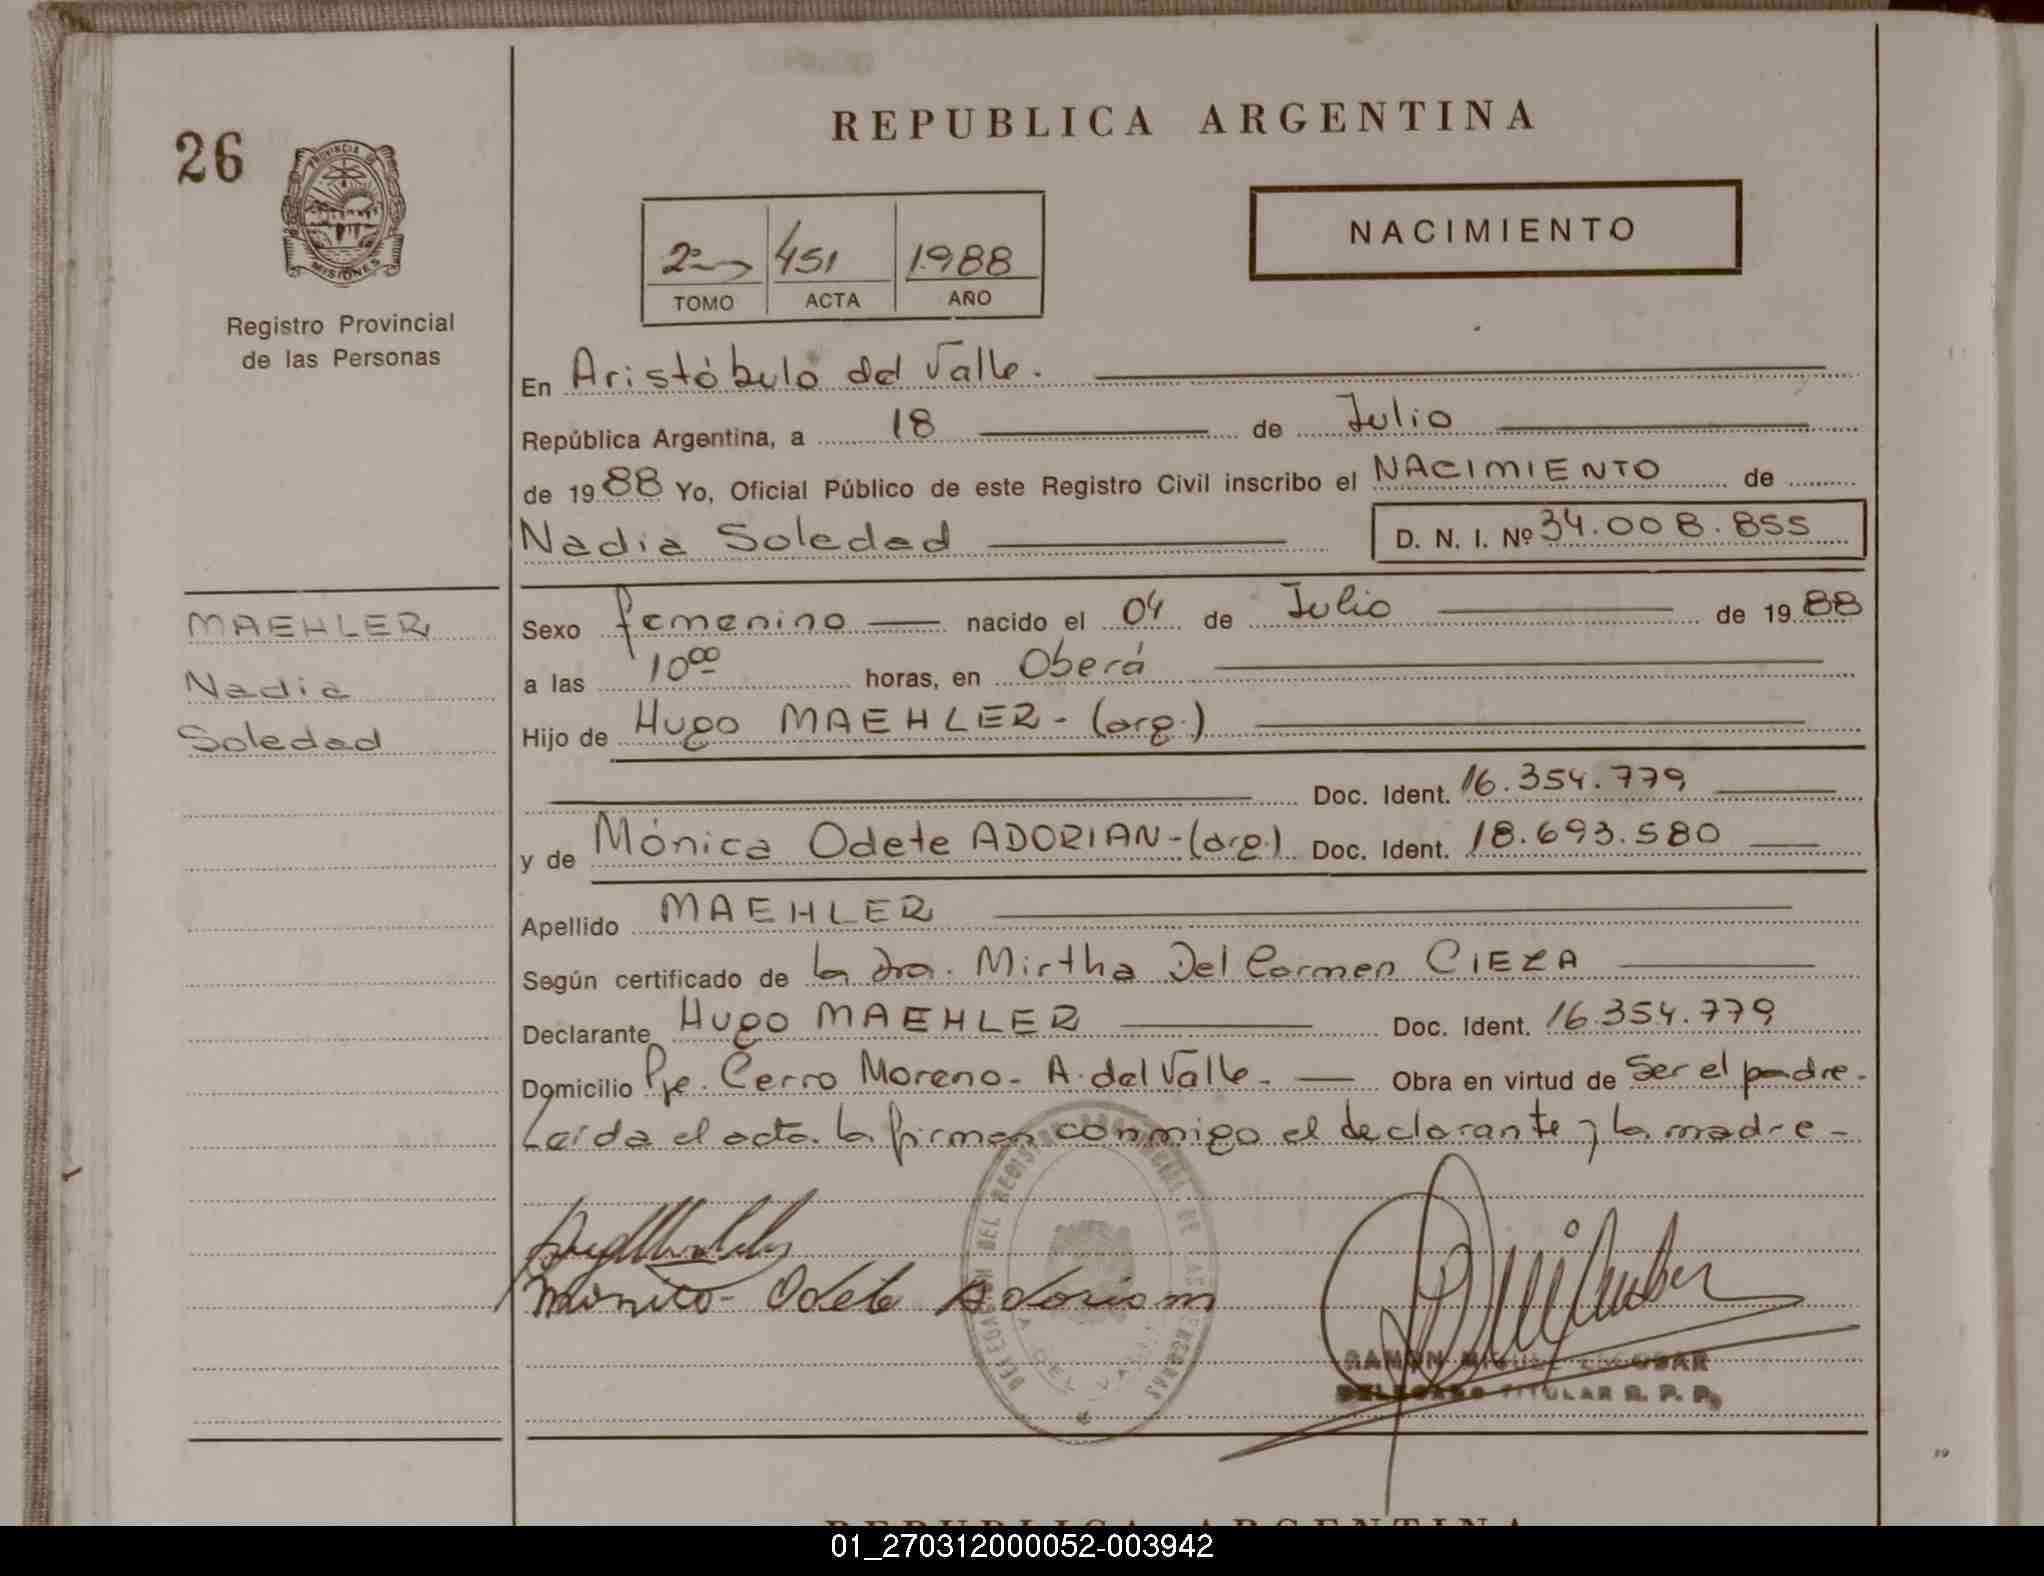 REPUBLICA ARGENTINA
26
PROVINCIA DE
MISIONES
Registro Provincial
de las Personas
2º 451 1988
TOMO ACTA AÑO
NACIMIENTO
En Aristóbulo del Valle.
República Argentina, a 18 de Julio
de 1988 Yo, Oficial Público de este Registro Civil inscribo el NACIMIENTO de
Nadia Soledad D. N. I. Nº 34.008.855
MAEHLER
Nadia
Soledad
Sexo femenino nacido el 04 de Julio de 1988
a las 10⁰⁰ horas, en Oberá
Hijo de Hugo MAEHLER - (arg.)
Doc. Ident. 16.354.779
y de Mónica Odete ADORIAN - (arg.) Doc. Ident. 18.693.580
Apellido MAEHLER
Según certificado de la dra. Mirtha Del Carmen CIEZA
Declarante Hugo MAEHLER Doc. Ident. 16.354.779
Domicilio Pje. Cerro Moreno - A. del Valle - Obra en virtud de Ser el padre -
Leída el acta. la firman conmigo el declarante y la madre -
Monica Odete Adoriam
DELEGACION DEL REGISTRO PROVINCIAL DE LAS PERSONAS
RAMON MIGUEL ESCOBAR
DELEGADO TITULAR R. P. P.
REPUBLICA ARGENTINA
01_270312000052-003942